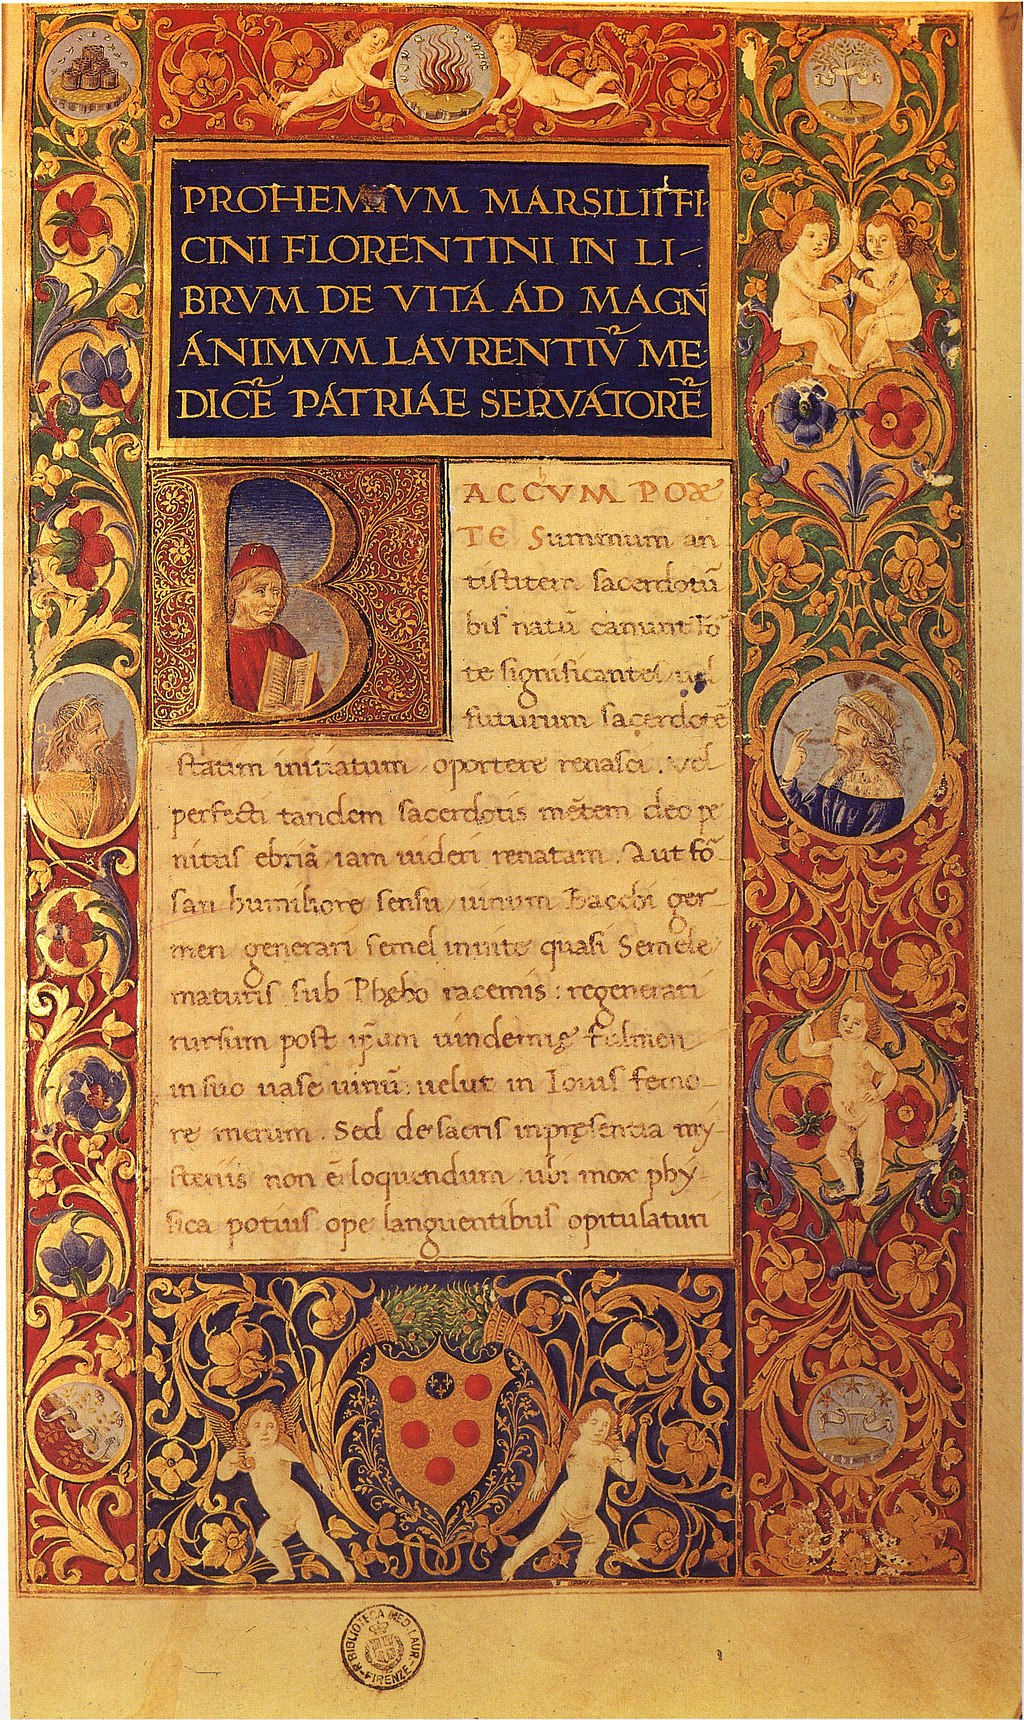 PROHEMIVM MARSILII FI-
CINI FLORENTINI IN LI-
BRVM DE VITA AD MAGN
ANIMVM LAVRENTIṼ ME
DICẼ PATRIAE SERVATORẼ
BACCVM POE
TE Summum an
tistitem sacerdotũ
bis natũ canunt fo
te significantes vel
futurum sacerdotẽ
statim initiatum oportere renasci. Vel
perfecti tandem sacerdotis mẽtem deo pe
nitus ebriã iam uideri renatam. Aut fo-
san humiliore sensu uinum Bacchi ger-
men generari semel in uite quasi Semele
maturis sub Phębo racemis: regenerari
rursum post ip̃um uindemię fulmen
in suo uase uinũ: uelut in Iouis femo-
re merum. Sed de sacris in pręsentia my-
steriis non ẽ loquendum ubi mox phy-
sica potius ope languentibus opitulaturi
R·BIBLIOTECA MED·LAUR·
FIRENZE